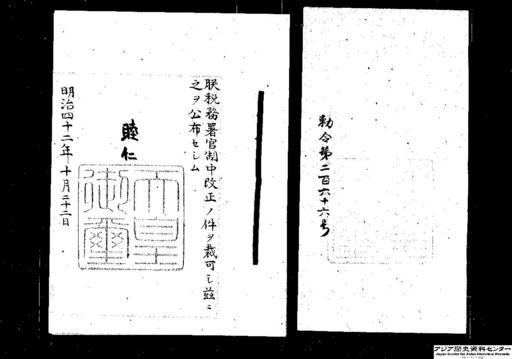 勅令第二百六十六号
朕税務署官制中改正ノ件ヲ裁可シ茲ニ
之ヲ公布セシム
睦仁
天皇
御璽
明治四十二年十月二十二日
アジア歴史資料センター
Japan Center for Asian Historical Records